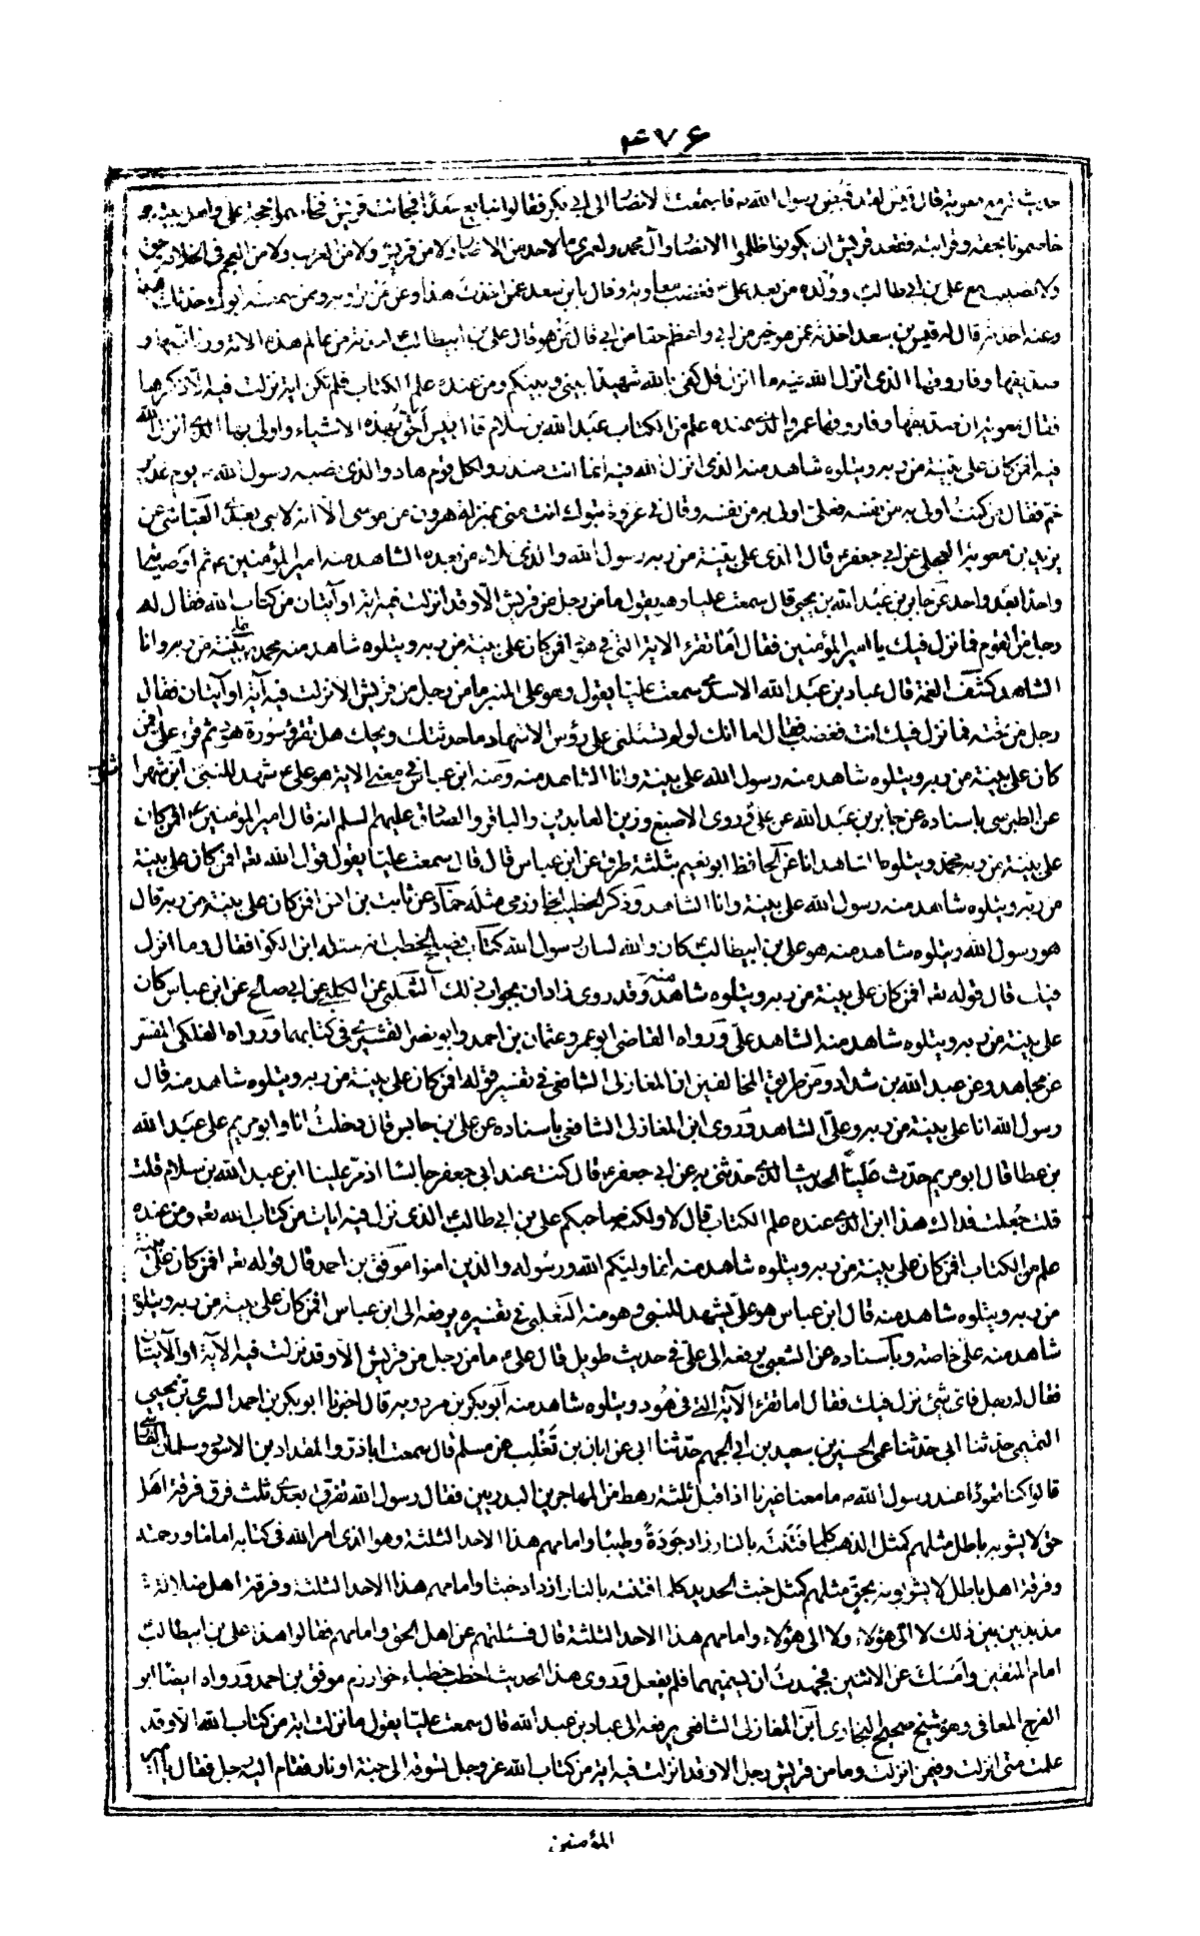 ٤٧٦
حديث له مع معوية قال قيس لقد قبض رسول الله ص فاجتمعت الانصار الى ابي بكر فقالوا نبايع سعدا فجائت قريش
خاصمونا بحقه وقرابته فقعد قريش ان يكونوا ظلموا الانصار وآل محمد ولعمري ما لاحد من الانصار ولا من قريش ولا من العرب ولا من العجم في الخلافة حق
ولا نصيب مع علي بن ابي طالب وولده من بعده فغضب معاوية وقال يابن سعد عمن اخذت هذا وعن من ترويه وممن سمعته ابوك حدثك هذا
وعنه اخذته قال له قيس بن سعد اخذته عمن هو خير من ابي واعظم حقا من ابي قال من هو قال علي بن ابيطالب عالم هذه الامة
صديقها وفاروقها الذي انزل الله فيه ما انزل قل كفى بالله شهيدا بيني وبينكم ومن عنده علم الكتاب فلم تكن اية نزلت فيه الا ذكرها
فقال معوية ان صديقها وفاروقها عمر والذي عنده علم من الكتاب عبد الله بن سلام قال قيس احق بهذه الاشياء واولى بها الذي انزل الله
فيه افمن كان على بينة من ربه ويتلوه شاهد منه الذي انزل الله فيه انما انت منذر ولكل قوم هاد والذي نصبه رسول الله ص يوم غدير
خم فقال من كنت اولى به من نفسه فعلي اولى به من نفسه وقال في غزوة تبوك انت مني بمنزلة هرون من موسى الا انه لا نبي بعدي العياشي عن
بريد بن معوية العجلي عن ابي جعفر ع قال الذي على بينة من ربه رسول الله والذي تلاه من بعده الشاهد منه امير المؤمنين ع ثم اوصيائه
واحدا بعد واحد عن جابر بن عبد الله بن يحيى قال سمعت عليا وهو يقول ما من رجل من قريش الا وقد انزلت فيه اية او آيتان من كتاب الله فقال له
رجل من القوم فما نزل فيك يا امير المؤمنين فقال اما تقرء الاية التي في هود افمن كان على بينة من ربه ويتلوه شاهد منه محمد ص على بينة من ربه وانا
الشاهد كشف الغمة قال عباد بن عبد الله الاسدي سمعت عليا يقول وهو على المنبر ما من رجل من قريش الا نزلت فيه آية او آيتان فقال
رجل ممن تحته فما نزل فيك انت فغضب فقال اما انك لو لم تسئلني على رؤس الاشهاد ما حدثتك ويحك هل تقرؤ سورة هود ثم قرء علي افمن
كان على بينة من ربه ويتلوه شاهد منه رسول الله على بينة وانا الشاهد منه وعنه ابن عباس في معنى الاية هو علي ع شهد للنبي ابن شهرا
شوب
عن الطبرسي باسناده عن جابر بن عبد الله عن علي ع وروى الاصبغ وزين العابدين والباقر والصادق عليهم السلم انه قال امير المؤمنين ع افمن كان
على بينة من ربه محمد ويتلوه الشاهد انا عن الحافظ ابو نعيم بثلثة طرق عن ابن عباس قال قال سمعت عليا يقول قول الله تعه افمن كان على بينة
من ربه ويتلوه شاهد منه رسول الله على بينة وانا الشاهد وذكر الخطيب الخوارزمي مثله حماد عن ثابت بن انس افمن كان على بينة من ربه قال
هو رسول الله ويتلوه شاهد منه هو علي بن ابيطالب كان والله لسان رسول الله كتاب فصيح الخطيب انه سئله ابن الكوا فقال وما انزل
فيك قال قوله تعه افمن كان على بينة من ربه ويتلوه شاهد منه وقد روى زاذان نحوا من ذلك الثعلبي عن الكلبي عن ابي صالح عن ابن عباس كان
على بينة من ربه ويتلوه شاهد منه الشاهد علي ورواه القاضي ابو عمرو عثمان بن احمد وابو نصر القشيري في كتابيهما ورواه الفلكي المفسر
عن مجاهد وعن عبد الله بن شداد ومن طريق المخالفين ابن المغازلي الشافعي في تفسير قوله افمن كان على بينة من ربه ويتلوه شاهد منه قال
رسول الله انا على بينة من ربه وعلي الشاهد وروى ابن المغازلي الشافعي باسناده عن علي بن حابس قال دخلت انا وابو مريم على عبد الله
بن عطا قال ابو مريم حدث عليا الحديث الذي حدثتني به عن ابي جعفر ع قال كنت عند ابي جعفر جالسا اذ مر علينا ابن عبد الله بن سلام قلت
قلت جعلت فداك هذا ابن الذي عنده علم الكتاب قال لا ولكنه صاحبكم علي بن ابي طالب الذي نزل فيه ايات من كتاب الله تعه ومن عنده
علم من الكتاب افمن كان على بينة من ربه ويتلوه شاهد منه انما وليكم الله ورسوله والذين امنوا موفق بن احمد قال قوله تعه افمن كان على بينة
من ربه ويتلوه شاهد منه قال ابن عباس هو علي يشهد للنبي وهو منه الثعلبي في تفسيره يرفعه الى ابن عباس افمن كان على بينة من ربه ويتلوه
شاهد منه علي خاصة وباسناده عن الشعبي يرفعه الى علي في حديث طويل قال علي ع ما من رجل من قريش الا وقد نزلت فيه الآية او الآيتان
فقال له رجل فاي شيء نزل فيك فقال اما تقرء الآية التي في هود ويتلوه شاهد منه ابو بكر بن مردويه قال اخبرنا ابو بكر بن احمد السري بن يحيى
التميمي حدثنا ابي حدثنا عمي الحسين بن سعيد بن ابي الجهم حدثنا ابي عن ابان بن تغلب عن مسلم قال سمعت اباذر والمقداد بن الاسود وسلمان الفارسي
قالوا كنا قعودا عند رسول الله ص ما معنا غيرنا اذ اقبل ثلثة رهط من المهاجرين البدريين فقال رسول الله تفترق بعدي ثلث فرق فرقة اهل
حق لا يشوبه باطل مثلهم كمثل الذهب كلما فتنته بالنار زاد جودة وطيبا وامامهم هذا الاحد الثلثة وهو الذي امر الله في كتابه اماما ورحمة
وفرقة اهل باطل لا يشوبونه بحق مثلهم كمثل خبث الحديد كلما افتتنته بالنار ازداد خبثا وامامهم هذا الاحد الثلثة وفرقة اهل ضلالة
مذبذبين بين ذلك لا الى هؤلاء ولا الى هؤلاء وامامهم هذا الاحد الثلثة قال فسئلتهم عن اهل الحق وامامهم فقالوا هذا علي بن ابيطالب
امام المتقين وامسك عن الاثنين فجهدت ان يسميهما فلم يفعل وروى هذا الحديث اخطب خطباء خوارزم موفق بن احمد ورواه ايضا ابو
الفرج المعافي وهو شيخ صحيح البخاري ابن المغازلي الشافعي يرفعه الى عباد بن عبد الله قال سمعت عليا يقول ما نزلت اية من كتاب الله الا وقد
علمت متى انزلت وفيمن انزلت وما من قريش رجل الا وقد انزلت فيه اية من كتاب الله عز وجل تسوقه الى جنة او نار فقام اليه رجل فقال يا امير
المؤمنين